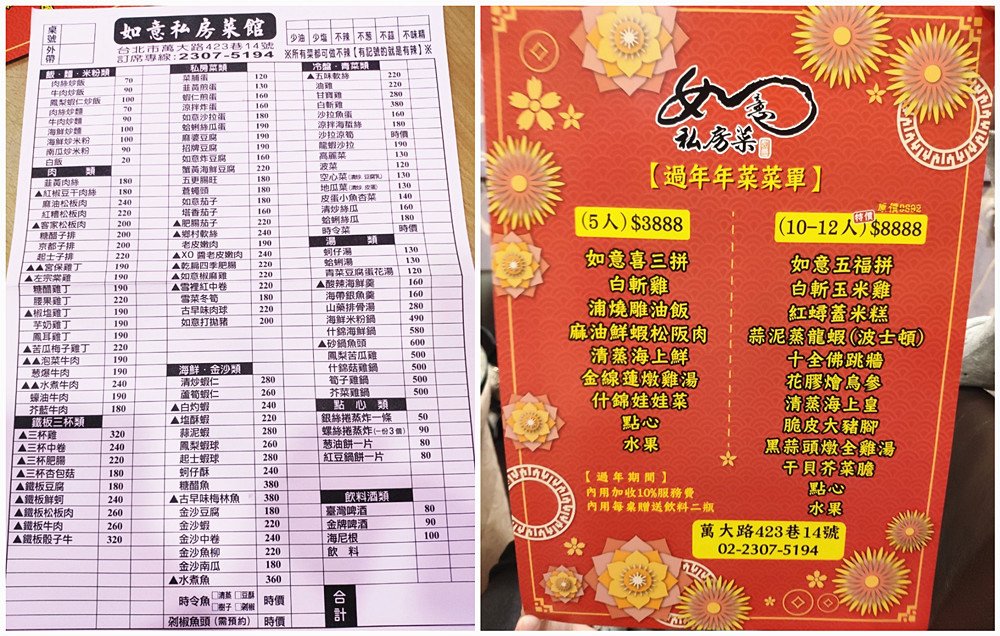 桌號
外帶
如意私房菜館
台北市萬大路423巷14號
訂席專線:2307-5194
少油 少塩 不辣 不葱 不蒜 不味精
※所有菜都可做不辣【有記號的就是有辣】※
飯．麵．米粉類
肉絲炒飯 70
牛肉炒飯 90
鳳梨蝦仁炒飯 100
肉絲炒麵 70
牛肉炒麵 90
海鮮炒麵 100
海鮮炒米粉 100
南瓜炒米粉 90
白飯 20
肉 類
韮黃肉絲 180
▲紅椒豆干肉絲 180
麻油松板肉 240
紅糟松板肉 220
▲客家松板肉 200
糖醋子排 200
京都子排 200
起士子排 220
▲▲宮保雞丁 190
▲左宗棠雞 190
糖醋雞丁 190
腰果雞丁 220
▲椒塩雞丁 190
芋奶雞丁 190
鳳耳雞丁 190
▲苦瓜梅子雞丁 220
▲▲泡菜牛肉 190
葱爆牛肉 190
▲▲水煮牛肉 240
蠔油牛肉 190
芥藍牛肉 180
鐵板三杯類
▲三杯雞 320
▲三杯中卷 240
▲三杯肥腸 220
▲三杯杏包菇 180
▲鐵板豆腐 180
▲鐵板鮮蚵 240
▲鐵板松板肉 260
▲鐵板牛肉 260
▲鐵板骰子牛 320
私房菜類
菜脯蛋 120
韮黃煎蛋 130
蝦仁煎蛋 160
涼拌炸蛋 160
如意沙拉蛋 180
蛤蜊絲瓜蛋 190
麻婆豆腐 190
招牌豆腐 190
如意炸豆腐 160
蟹黃海鮮豆腐 220
五更腸旺 180
蒼蠅頭 180
如意茄子 180
塔香茄子 160
▲肥腸茄子 220
▲鄉村軟絲 240
老皮嫩肉 190
▲XO 醬老皮嫩肉 240
▲乾扁四季肥腸 220
▲如意椒麻雞 220
▲雪裡紅中卷 220
雪菜冬筍 180
古早味肉球 220
如意打拋豬 200
海鮮．金沙類
清炒蝦仁 280
蘆筍蝦仁 260
▲白灼蝦 240
▲塩酥蝦 220
蒜泥蝦 280
鳳梨蝦球 260
起士蝦球 280
蚵仔酥 240
糖醋魚 380
▲古早味梅林魚 380
金沙豆腐 180
金沙蝦 220
金沙中卷 240
金沙魚柳 220
金沙南瓜 180
▲水煮魚 360
時令魚 □清蒸 □豆酥 □樹子 □剁椒 時價
剁椒魚頭 (需預約) 時價
冷盤．青菜類
▲五味軟絲 220
油雞 220
甘寶雞 280
白斬雞 380
沙拉魚蛋 160
涼拌海蜇絲 180
沙拉涼筍 時價
龍蝦沙拉 190
高麗菜 130
菠菜 120
空心菜 130
地瓜菜 130
皮蛋小魚杏菜 130
清炒絲瓜 160
蛤蜊絲瓜 180
時令菜 時價
湯 類
蚵仔湯 130
蛤蜊湯 130
青菜豆腐蛋花湯 120
▲酸辣海鮮羹 160
海帶銀魚羹 160
山藥排骨湯 280
海鮮米粉鍋 490
什錦海鮮鍋 580
▲砂鍋魚頭 600
鳳梨苦瓜雞 500
什錦菇雞鍋 500
筍子雞鍋 500
芥菜雞鍋 500
點 心 類
銀絲捲蒸炸一條 50
螺絲捲蒸炸(一份3個) 90
葱油餅一片 80
紅豆鍋餅一片 80
飲料酒類
臺灣啤酒 80
金牌啤酒 90
海尼根 100
飲 料
合計
如意
私房菜
【過年年菜菜單】
(5人)$3888
如意喜三拼
白斬雞
浦燒雕油飯
麻油鮮蝦松阪肉
清蒸海上鮮
金線蓮燉雞湯
什錦娃娃菜
點心
水果
【過年期間】
內用加收10%服務費
內用每桌贈送飲料二瓶
特價
(10-12人)$8888
如意五福拼
白斬玉米雞
紅蟳蓋米糕
蒜泥蒸龍蝦(波士頓)
十全佛跳牆
花膠燴烏參
清蒸海上皇
脆皮大豬腳
黑蒜頭燉全雞湯
干貝芥菜膽
點心
水果
萬大路423巷14號
02-2307-5194